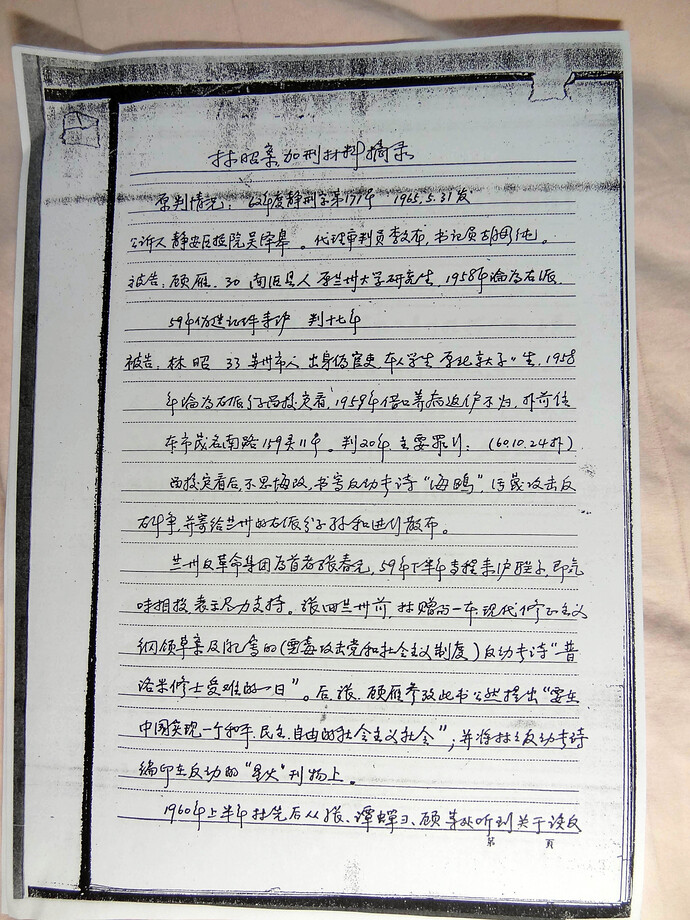 林昭案加刑材料摘录
原判情况：62年度静刑字第171号 1965.5.31发
公诉人静安区检院吴泽皋。代理审判员李文布，书记员胡国纯。
被告：顾雁．30 南汇县人 原兰州大学研究生，1958年论为右派．
59年伪造证件来沪 判十七年
被告：林昭 33 苏州市人 出身伪官吏 本人学生 原北京大学生，1958
年论为右派分子留校察看，1959年借口养病返沪不归，外前住
本市茂名南路159弄11号。判20年 主要罪行：（60.10.24外）
留校察看后，不思悔改，书写反动长诗“海鸥”，污蔑攻击反
右斗争，并寄给兰州的右派分子孙和进行散布。
兰州反革命集团为首者张春元，59年下半年专程来沪 即气
味相投 表示尽力支持。张回兰州前，林赠与一本现代修正主义
纲领草案及所写的（恶毒攻击党和社会主义制度）反动长诗“普
洛米修士受难的一日”。后张、顾雁参改此书公然提出“要在
中国实现一个和平、民主、自由的社会主义社会”；并将林之反动长诗
编印在反动的“星火”刊物上。
1960年上半年林先后从张、谭蝉雪、顾等处听到关于该反
第 页